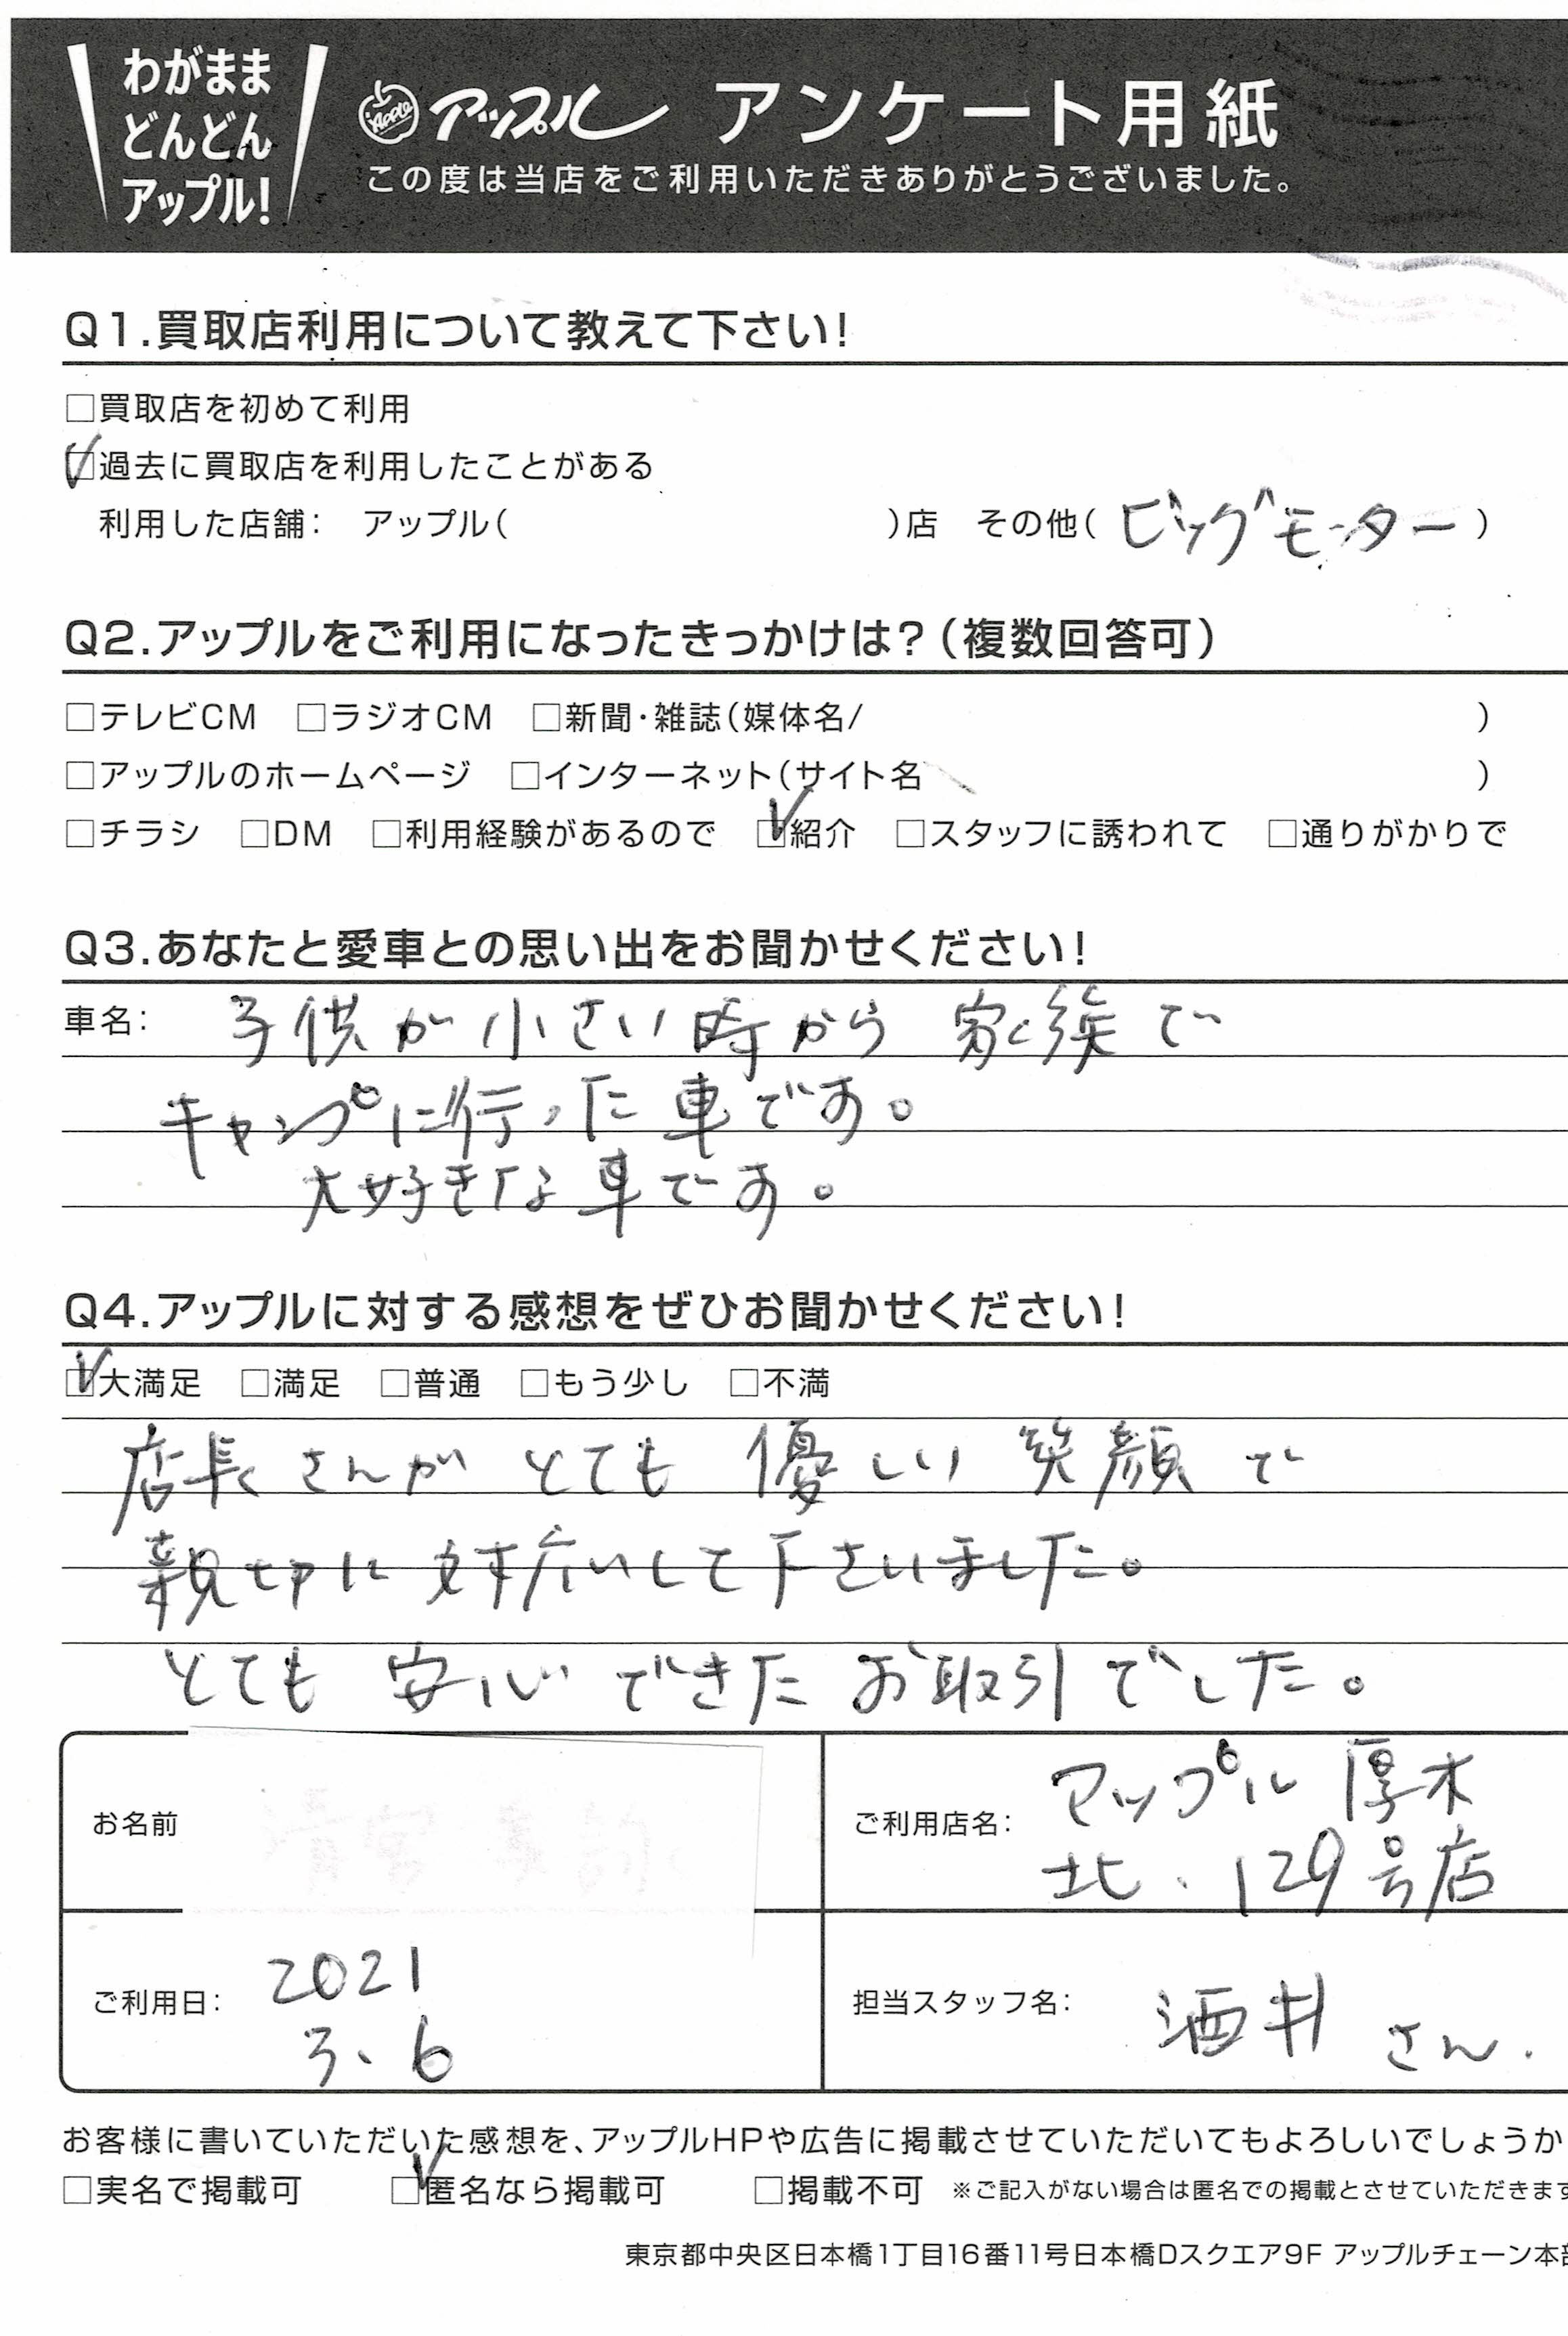 わがまま
どんどん
アップル!
Apple アップル アンケート用紙
この度は当店をご利用いただきありがとうございました。
Q1.買取店利用について教えて下さい!
□買取店を初めて利用
☑過去に買取店を利用したことがある
利用した店舗: アップル( )店 その他( ビッグモーター )
Q2.アップルをご利用になったきっかけは?(複数回答可)
□テレビCM □ラジオCM □新聞・雑誌(媒体名/ )
□アップルのホームページ □インターネット(サイト名 )
□チラシ □DM □利用経験があるので ☑紹介 □スタッフに誘われて □通りがかりで
Q3.あなたと愛車との思い出をお聞かせください!
車名: 子供が小さい時から 家族で
キャンプに行った車です。
大好きな車です。
Q4.アップルに対する感想をぜひお聞かせください!
☑大満足 □満足 □普通 □もう少し □不満
店長さんが とても 優しい 笑顔で
親切に対応いして下さいました。
とても 安心できた お取引でした。
お名前
ご利用店名: アップル 厚木
北、129号店
ご利用日: 2021
3、6
担当スタッフ名: 酒井 さん.
お客様に書いていただいた感想を、アップルHPや広告に掲載させていただいてもよろしいでしょうか
□実名で掲載可 ☑匿名なら掲載可 □掲載不可 ※ご記入がない場合は匿名での掲載とさせていただきます
東京都中央区日本橋1丁目16番11号日本橋Dスクエア9F アップルチェーン本部